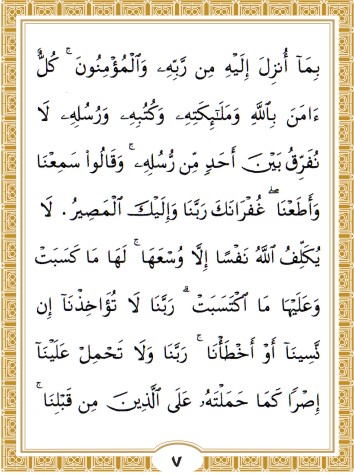 بِمَآ أُنزِلَ إِلَيْهِ مِن رَّبِّهِۦ وَٱلْمُؤْمِنُونَ ۚ كُلٌّ
ءَامَنَ بِٱللَّهِ وَمَلَٰٓئِكَتِهِۦ وَكُتُبِهِۦ وَرُسُلِهِۦ لَا
نُفَرِّقُ بَيْنَ أَحَدٍ مِّن رُّسُلِهِۦ ۚ وَقَالُوا۟ سَمِعْنَا
وَأَطَعْنَا ۖ غُفْرَانَكَ رَبَّنَا وَإِلَيْكَ ٱلْمَصِيرُ . لَا
يُكَلِّفُ ٱللَّهُ نَفْسًا إِلَّا وُسْعَهَا ۚ لَهَا مَا كَسَبَتْ
وَعَلَيْهَا مَا ٱكْتَسَبَتْ ۗ رَبَّنَا لَا تُؤَاخِذْنَآ إِن
نَّسِينَآ أَوْ أَخْطَأْنَا ۚ رَبَّنَا وَلَا تَحْمِلْ عَلَيْنَآ
إِصْرًا كَمَا حَمَلْتَهُۥ عَلَى ٱلَّذِينَ مِن قَبْلِنَا ۚ
٧